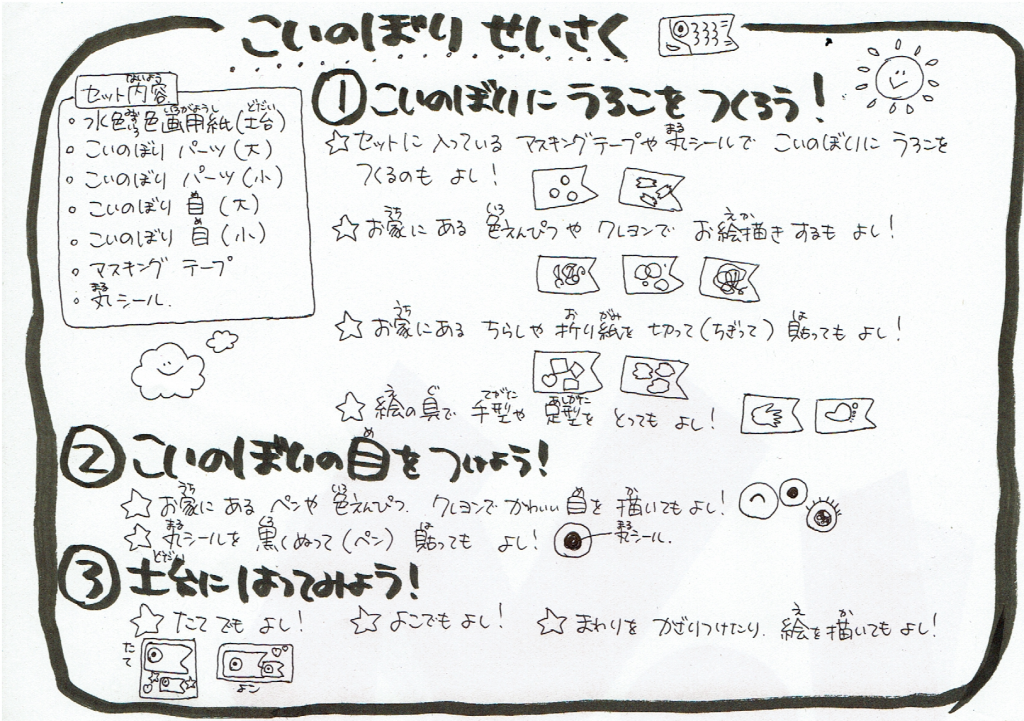 こいのぼり せいさく
セット内容
・水色色画用紙(土台)
・こいのぼり パーツ(大)
・こいのぼり パーツ(小)
・こいのぼり 目(大)
・こいのぼり 目(小)
・マスキング テープ
・丸シール.
① こいのぼりに うろこを つくろう!
☆セットに 入っている マスキングテープや 丸シールで こいのぼりに うろこを
つくるのも よし!
☆お家に ある 色えんぴつや クレヨンで お絵描きするも よし!
☆お家にある ちらしや 折り紙を 切って(ちぎって) 貼っても よし!
☆絵の具で 手型や 足型を とっても よし!
② こいのぼりの目を つけよう!
☆お家に ある ペンや 色えんぴつ. クレヨンで かわいい 目を 描いてもよし!
☆丸シールを 黒くぬって(ペン) 貼っても よし!
丸シール.
③ 土台に はってみよう!
☆たてでも よし! ☆よこでもよし! ☆まわりを かざりつけたり. 絵を描いても よし!
たて
よこ